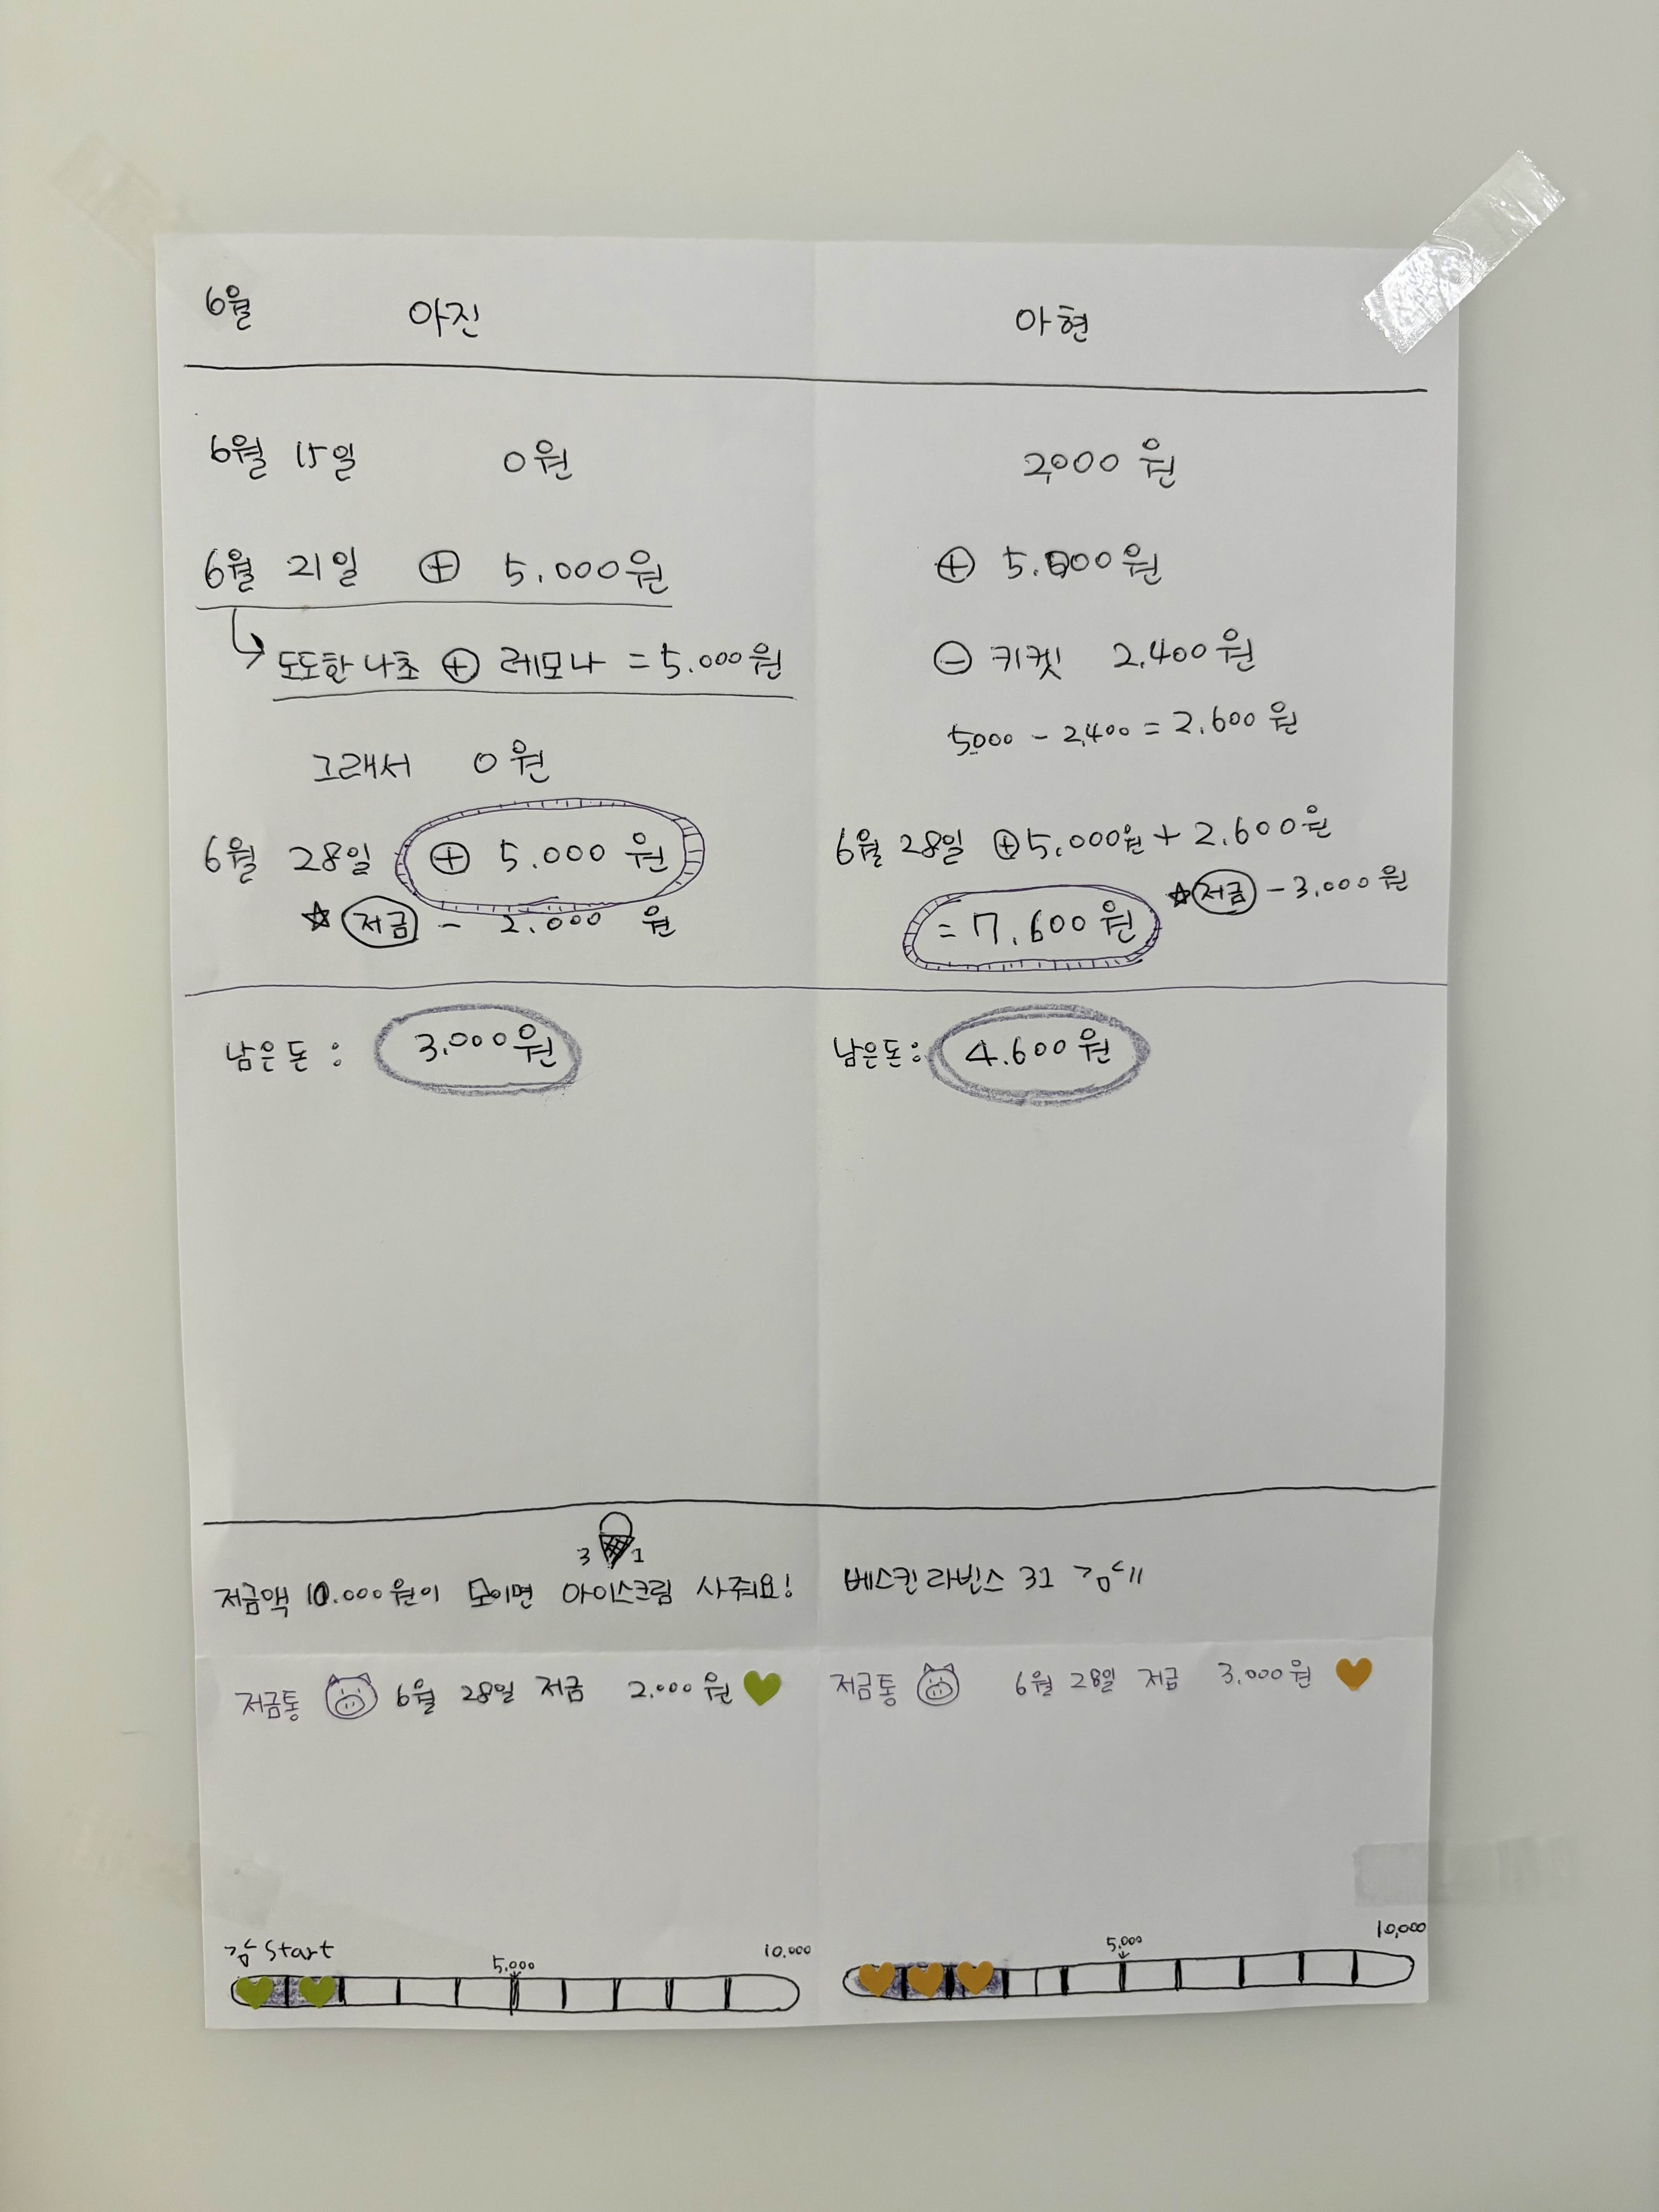 6월 아진 아현
6월 15일 0원
2,000원
6월 21일 ⊕ 5.000원
⊕ 5.000원
도도한나초 ⊕ 레모나 = 5.000원
⊖ 키켓 2,400원
5,000 - 2,400 = 2.600원
그래서 0원
6월 28일 ⊕ 5.000원
☆ 저금 - 2.000 원
6월 28일 ⊕5,000원 + 2.600원
= 7.600원
★저금 - 3.000원
남은돈 : 3.000원
남은돈: 4.600원
3 1
저금액 10.000원이 모이면 아이스크림 사줘요!
베스킨라빈스 31
저금통 6월 28일 저금 2.000원
저금통 6월 28일 저금 3.000원
Start
5,000
10.000
5,000
10,000